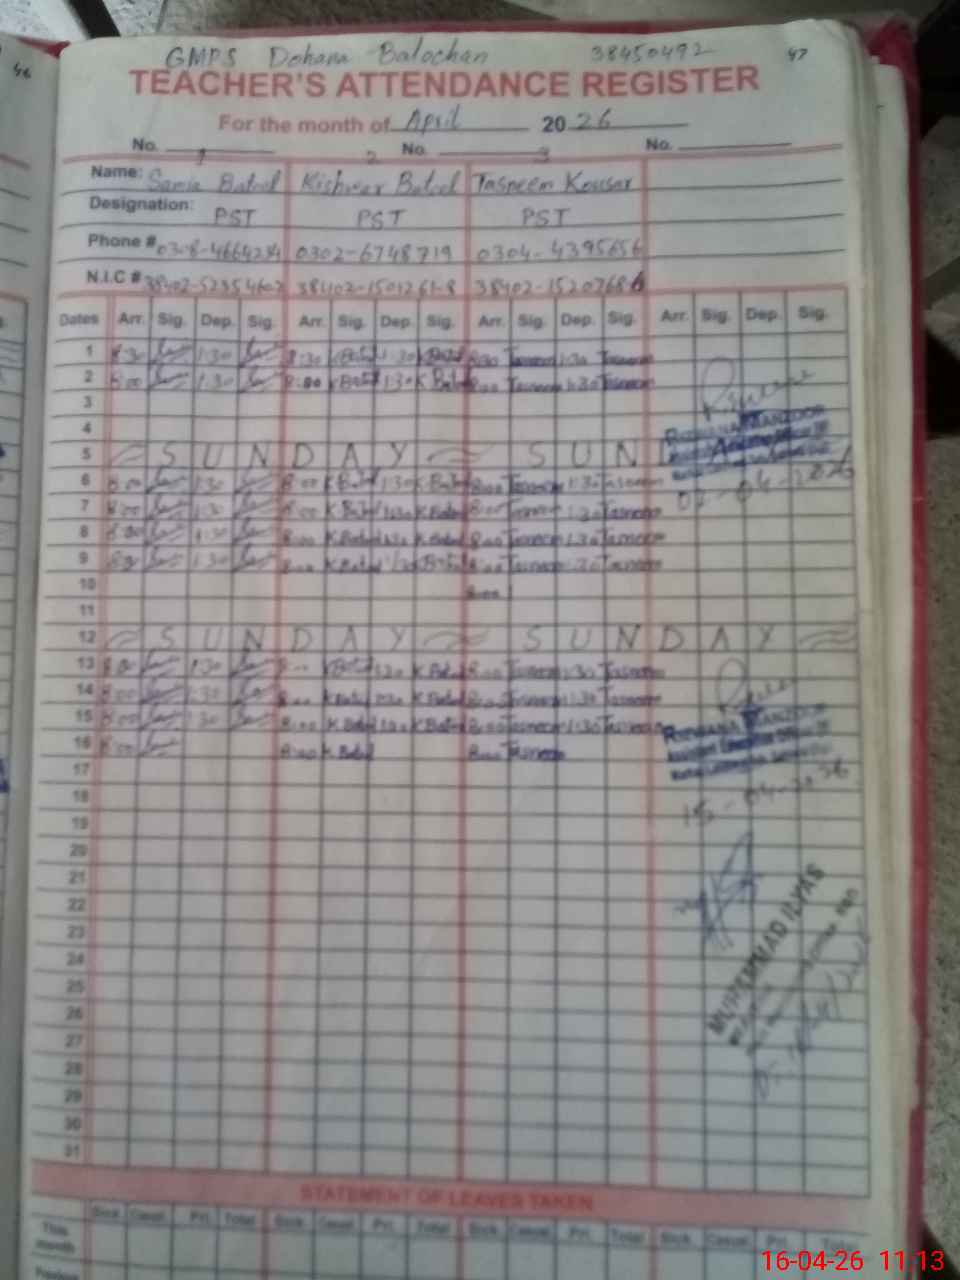 46
GMPS Dohana Balochan 38450492 47
TEACHER'S ATTENDANCE REGISTER
For the month of April 2026
No. 1 No. 2 3 No.
Name: Samia Batool Kishwar Batool Tasneem Kousar
Designation: PST PST PST
Phone # 0302-6748719 0304-4395656
N.I.C #
Dates Arr. Sig. Dep. Sig. Arr. Sig. Dep. Sig. Arr. Sig. Dep. Sig. Arr. Sig. Dep. Sig.
1 8:30 1:30 8:30 K Batool 1:30 K Batool 8:30 Tasneem 1:30 Tasneem
2 8:00 1:30 8:00 K Batool 1:30 K Batool 8:00 Tasneem 1:30 Tasneem
3
4
ROZWANA MANZOOR
5 SUNDAY SUN
6 8:00 1:30 8:00 K Batool 1:30 K Batool 8:00 Tasneem 1:30 Tasneem
02-04-2026
7 8:00 1:30 8:00 K Batool 1:30 K Batool 8:00 Tasneem 1:30 Tasneem
8 8:00 1:30 8:00 K Batool 1:30 K Batool 8:00 Tasneem 1:30 Tasneem
9 8:00 1:30 8:00 K Batool 1:30 K Batool 8:00 Tasneem 1:30 Tasneem
10 8:00
11
12 SUNDAY SUNDAY
13 8:00 1:30 8:00 K Batool 1:30 K Batool 8:00 Tasneem 1:30 Tasneem
14 8:00 1:30 8:00 K Batool 1:30 K Batool 8:00 Tasneem 1:30 Tasneem
15 8:00 1:30 8:00 K Batool 1:30 K Batool 8:00 Tasneem 1:30 Tasneem
ROZWANA MANZOOR
16 8:00 8:00 K Batool 8:00 Tasneem
17
18
15-04-2026
19
20
21
22
23
MUHAMMAD ILYAS
24
25
26
27
28
29
30
31
STATEMENT OF LEAVES TAKEN
Sick Casual Pri. Total Sick Casual Pri. Total Sick Casual Pri. Total Sick Casual Pri. Total
This month
Previous
16-04-26 11:13